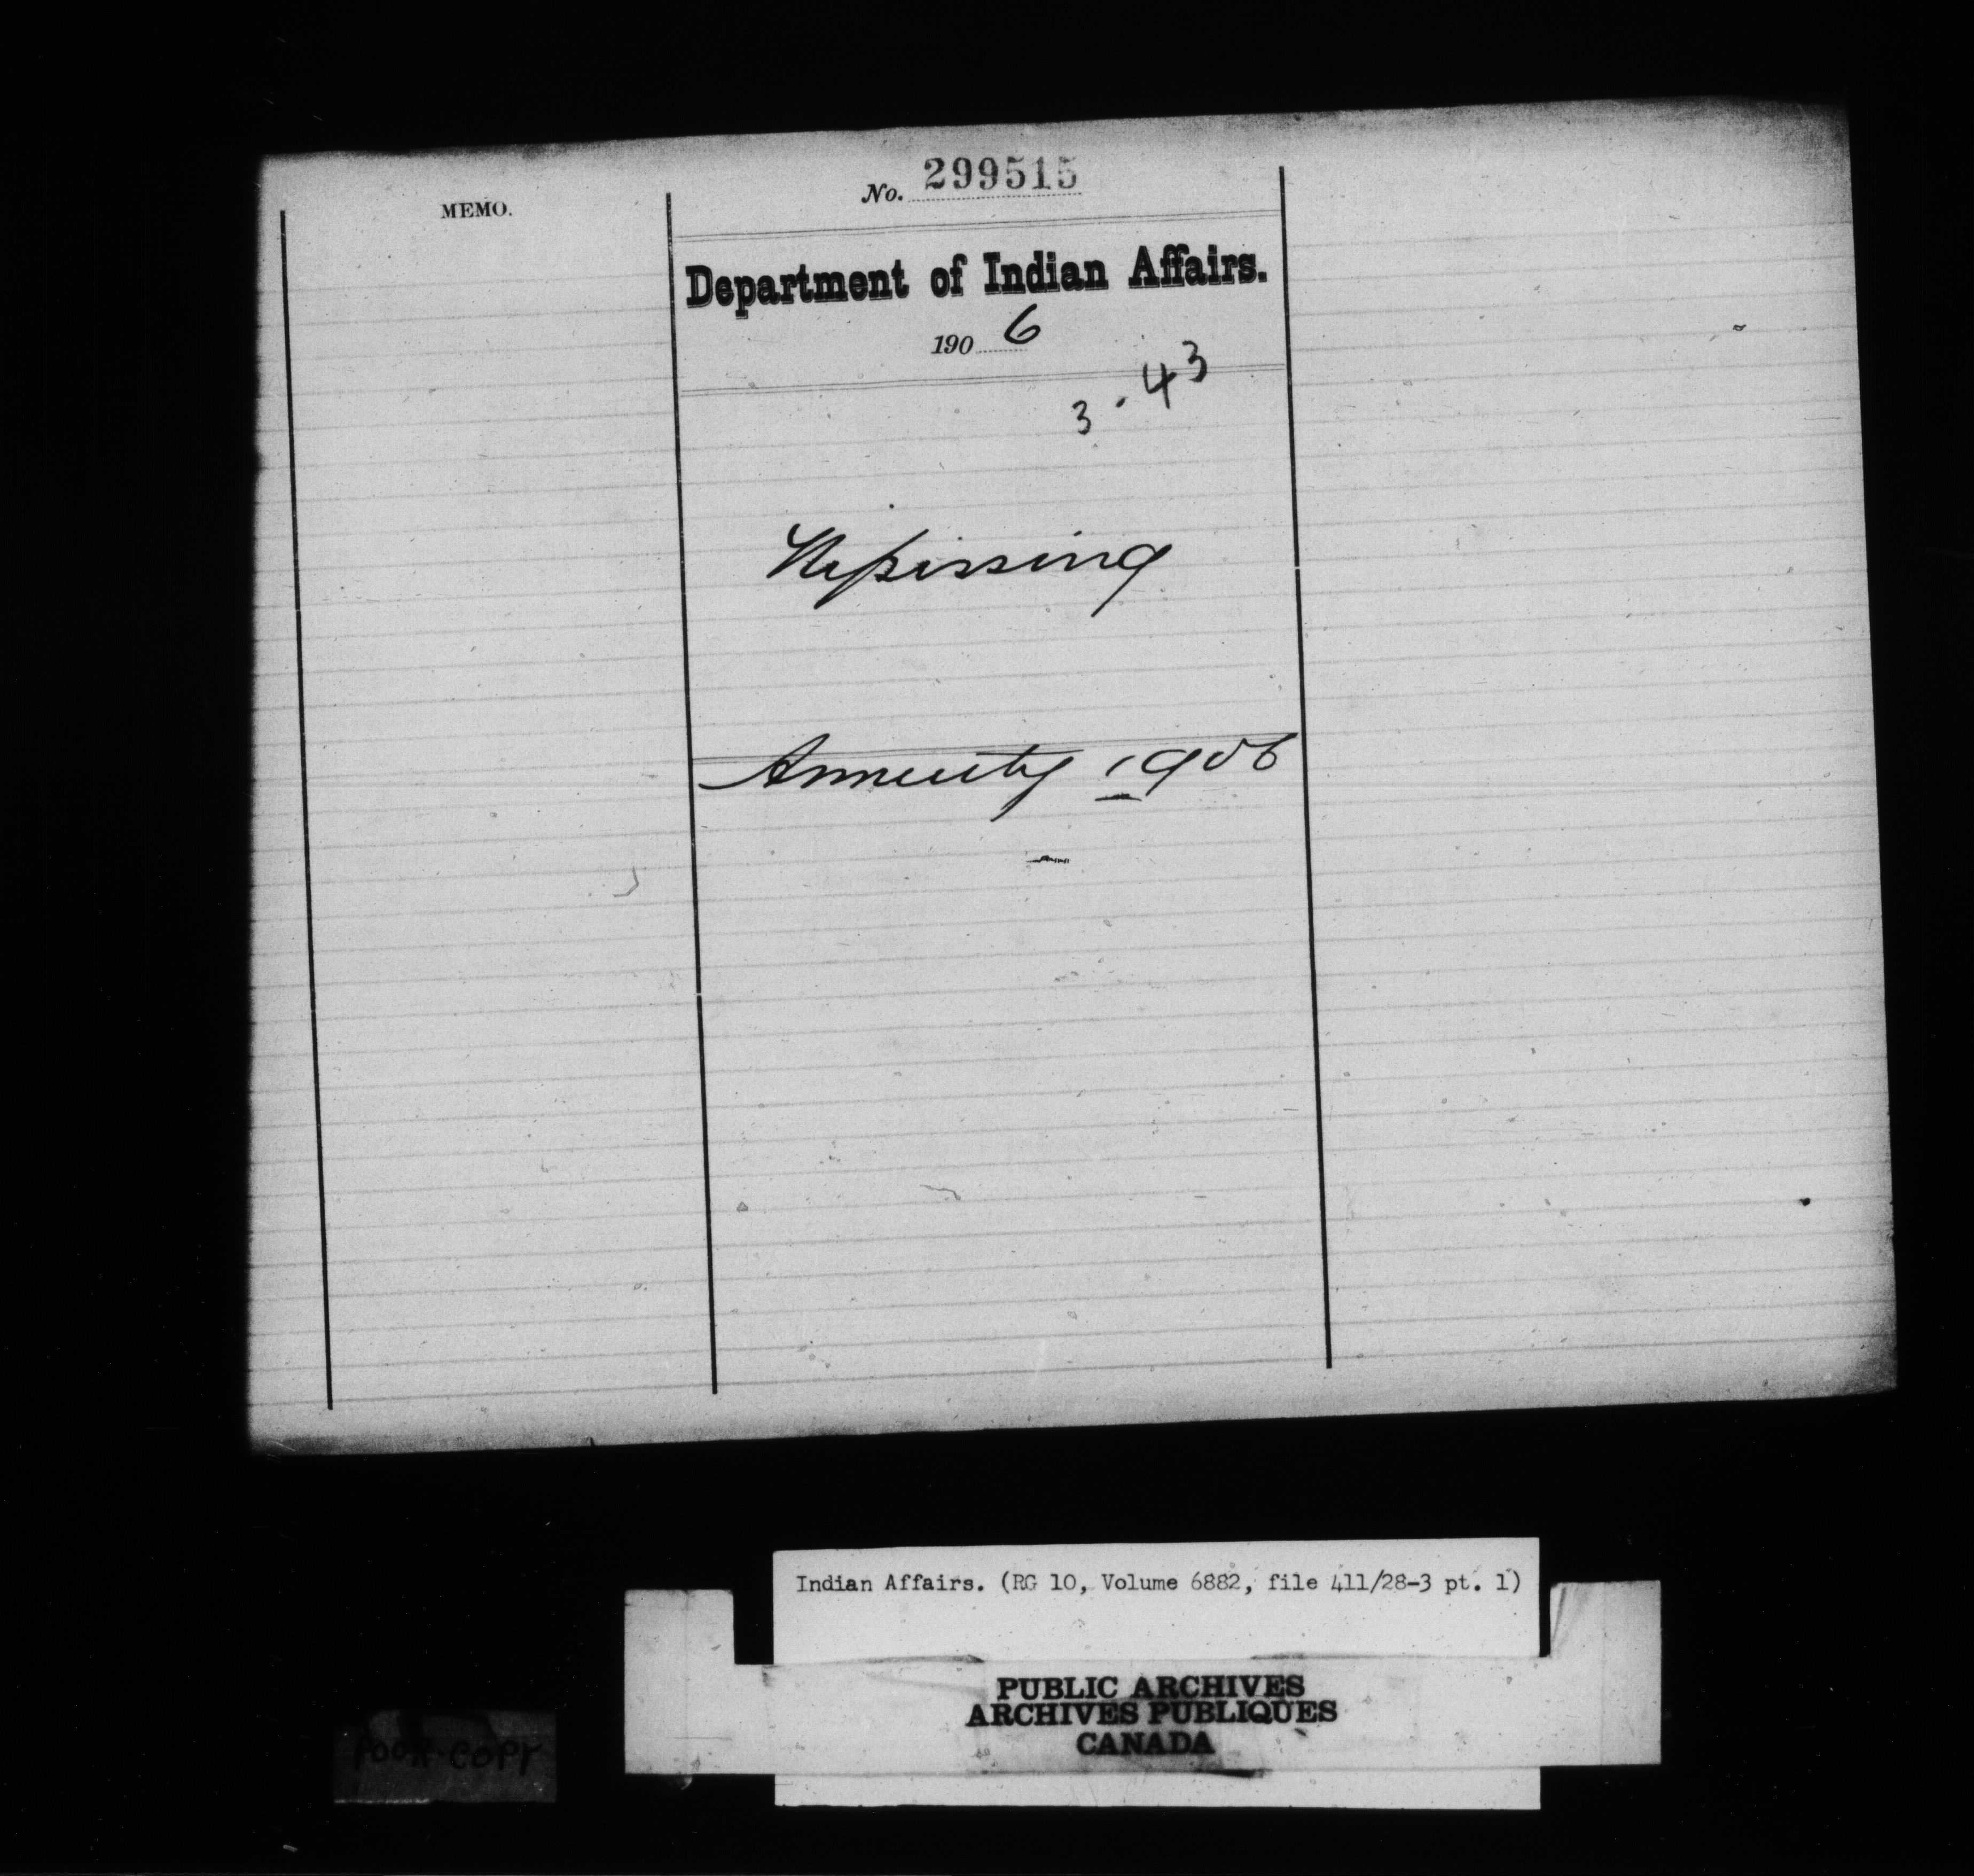 MEMO.
No. 299515
Department of Indian Affairs.
190 6
3 · 43
Nipissing
Annuity 1906
Indian Affairs. (RG 10, Volume 6882, file 411/28-3 pt. 1)
PUBLIC ARCHIVES
ARCHIVES PUBLIQUES
CANADA
POOR COPY